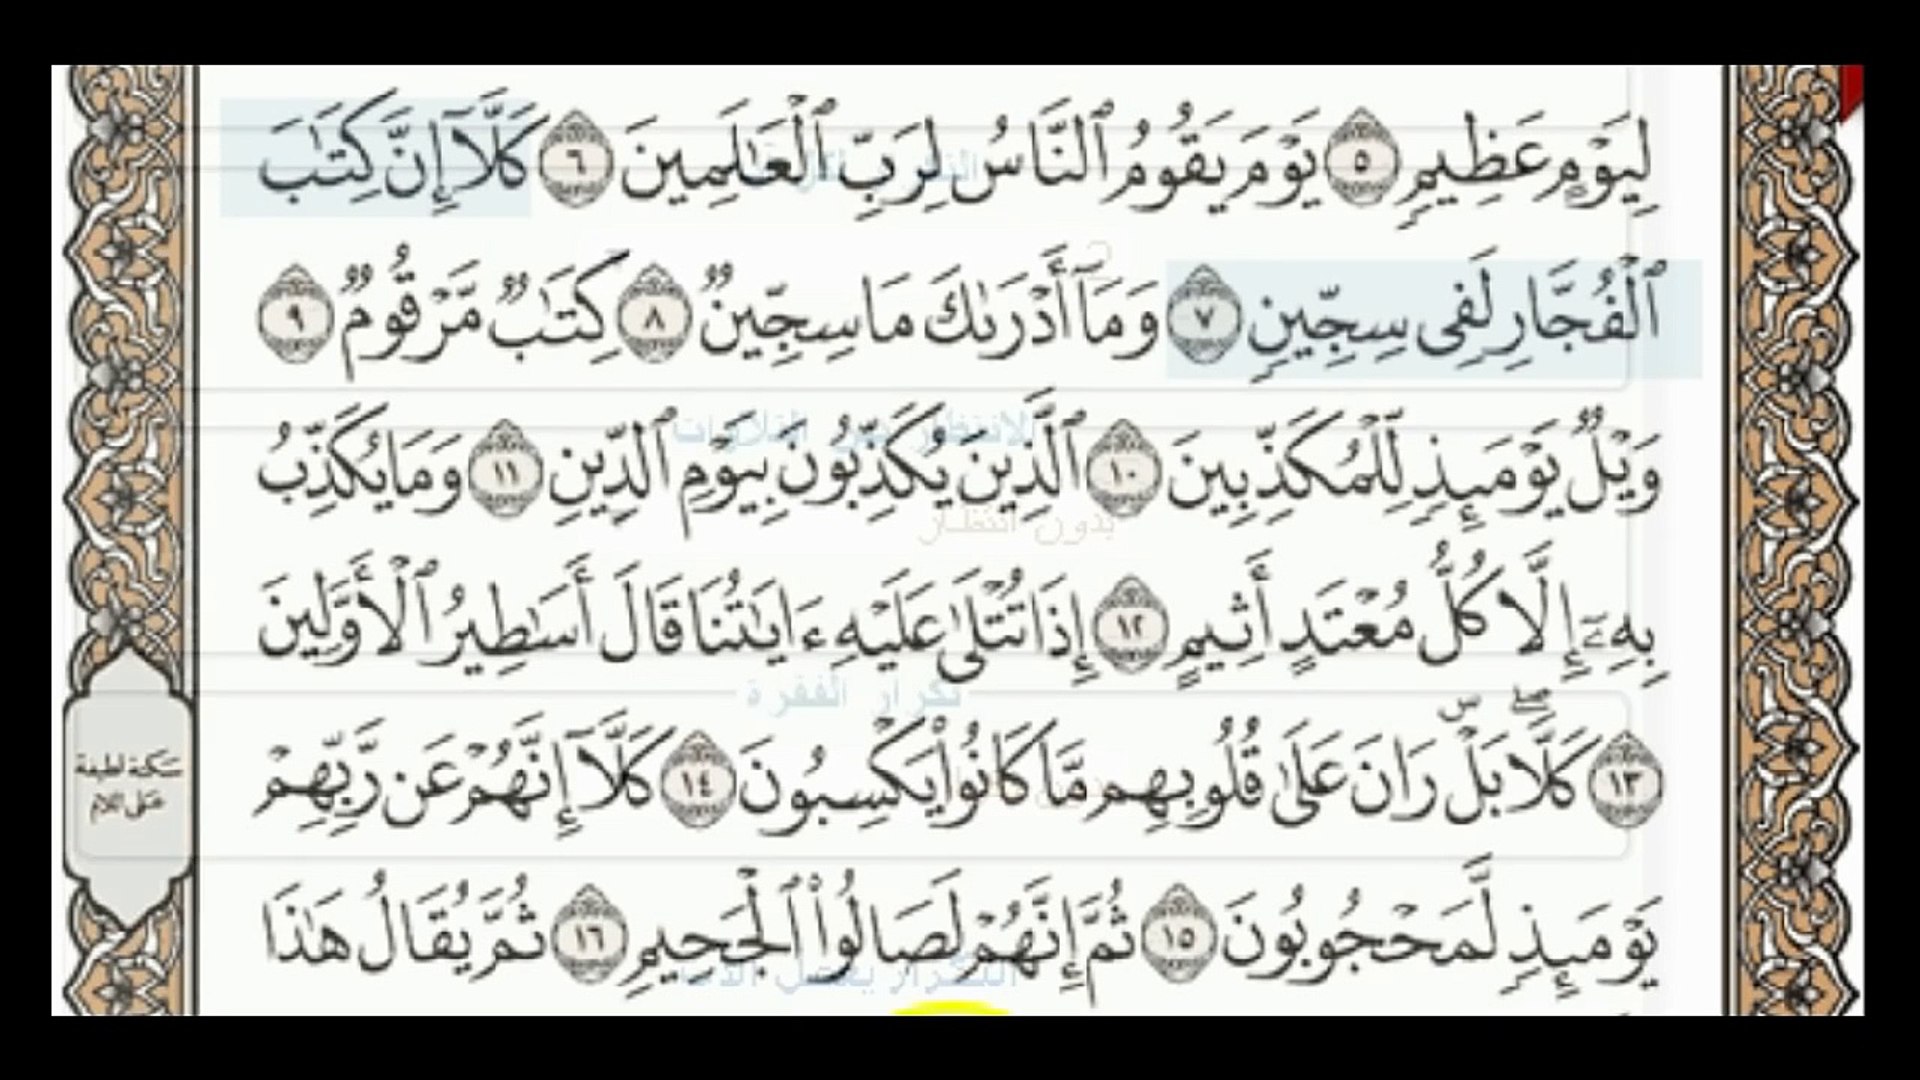 لِيَوْمٍ عَظِيمٍ ٥ يَوْمَ يَقُومُ ٱلنَّاسُ لِرَبِّ ٱلْعَٰلَمِينَ ٦ كَلَّآ إِنَّ كِتَٰبَ
ٱلْفُجَّارِ لَفِى سِجِّينٍ ٧ وَمَآ أَدْرَىٰكَ مَا سِجِّينٌ ٨ كِتَٰبٌ مَّرْقُومٌ ٩
وَيْلٌ يَوْمَئِذٍ لِّلْمُكَذِّبِينَ ١٠ ٱلَّذِينَ يُكَذِّبُونَ بِيَوْمِ ٱلدِّينِ ١١ وَمَا يُكَذِّبُ
بِهِۦٓ إِلَّا كُلُّ مُعْتَدٍ أَثِيمٍ ١٢ إِذَا تُتْلَىٰ عَلَيْهِ ءَايَٰتُنَا قَالَ أَسَٰطِيرُ ٱلْأَوَّلِينَ
١٣ كَلَّا ۖ بَلْ ۜ رَانَ عَلَىٰ قُلُوبِهِم مَّا كَانُوا۟ يَكْسِبُونَ ١٤ كَلَّآ إِنَّهُمْ عَن رَّبِّهِمْ
يَوْمَئِذٍ لَّمَحْجُوبُونَ ١٥ ثُمَّ إِنَّهُمْ لَصَالُوا۟ ٱلْجَحِيمِ ١٦ ثُمَّ يُقَالُ هَٰذَا
سكتة لطيفة
على اللام
الانتظار بين التلاوات
بدون انتظار
تكرار الفقرة